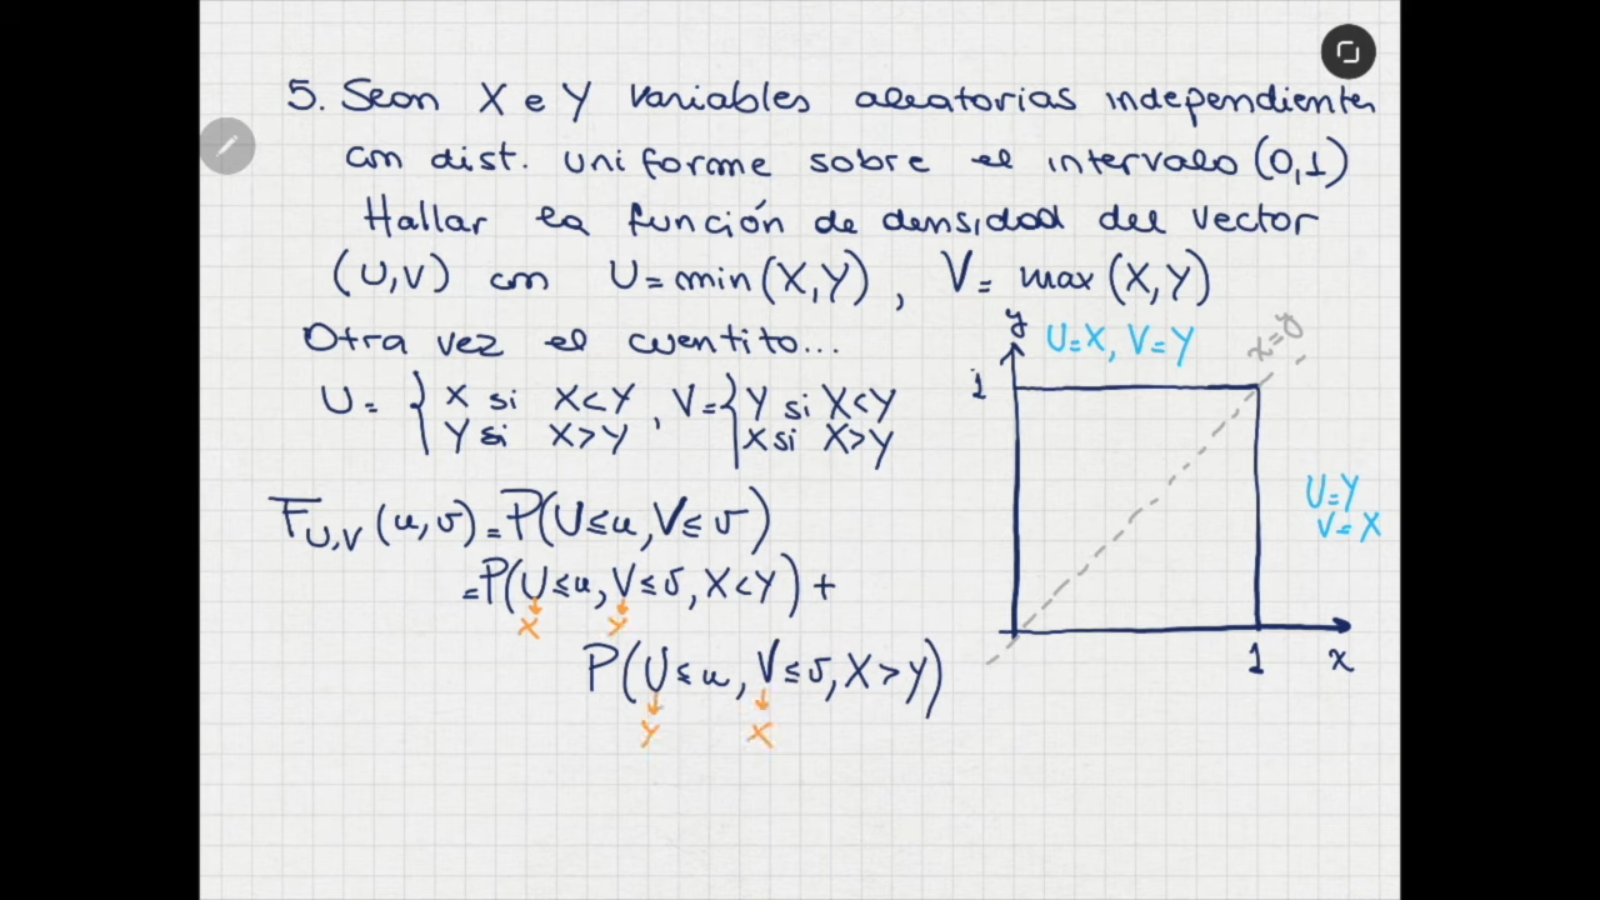 5. Sean X e Y variables aleatorias independientes
con dist. uniforme sobre el intervalo (0,1)
Hallar la función de densidad del vector
(U,V) con U=min(X,Y), V=max(X,Y)
Otra vez el cuentito...
U= { X si X<Y , V= { Y si X<Y
Y si X>Y X si X>Y
F_{U,V}(u,v)=P(U≤u,V≤v)
=P(U≤u,V≤v,X<Y)+
X Y
P(U≤u,V≤v,X>Y)
Y X
y
U=X, V=Y
x=y
1
U=Y
V=X
1
x